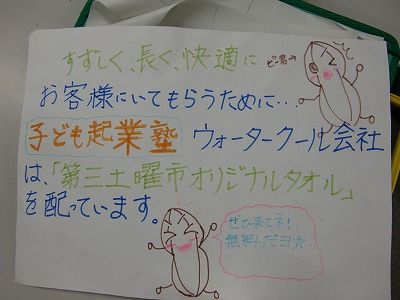 すずしく、長く、快適に
ピー君→
お客様にいてもらうために…
子ども起業塾 ウォータークール会社
は、「第三土曜市オリジナルタオル」
を配っています。
ぜひ来てネ!
無料だヨ☆